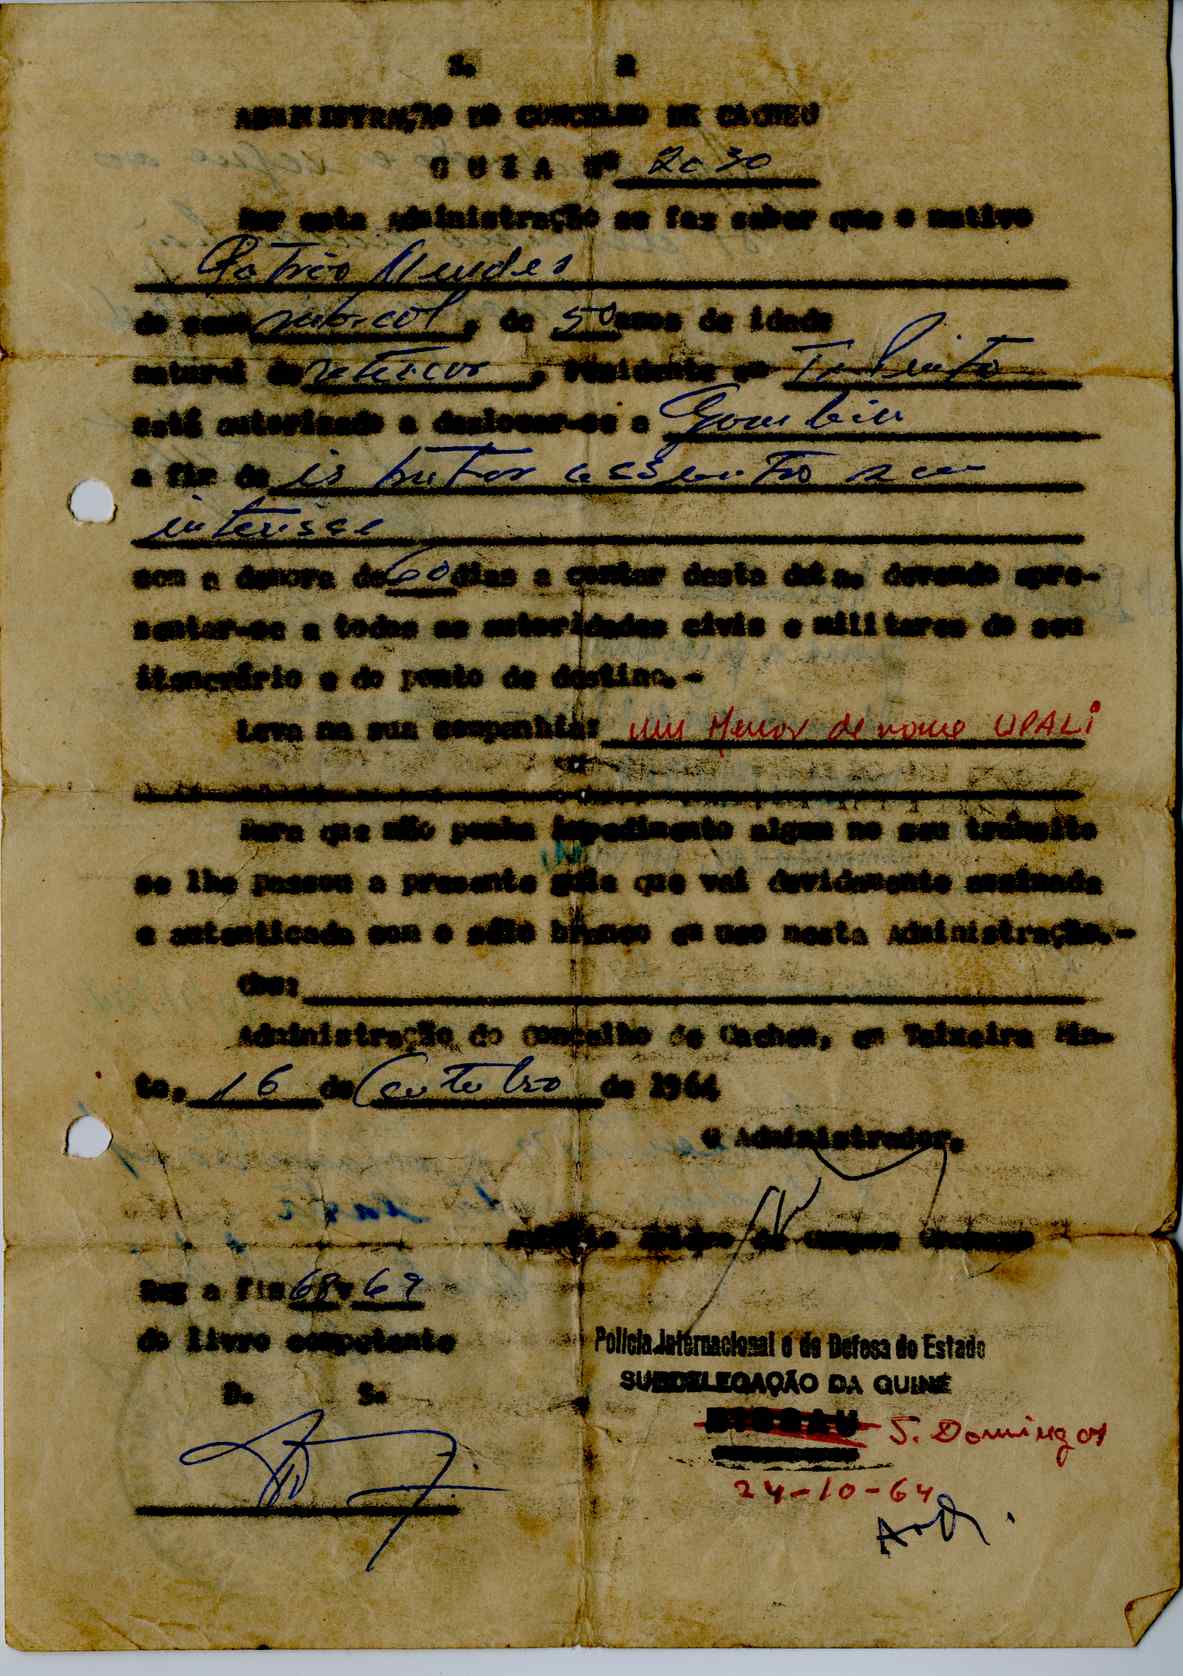 S. R
ADMINISTRAÇÃO DO CONCELHO DE CACHEU
G U I A Nº 2030
Por esta Administração se faz saber que o nativo
Patrão Mendes
de 50 anos de idade
natural de , residente em T. Pinto
está autorizado a deslocar-se a Gambia
a fim de ir tratar assunto seu
interisse
com a demora de 60 dias a contar desta data, devendo apre-
sentar-se a todas as autoridades civis e militares do seu
itenerário e do ponto de destino.-
Leva na sua companhia: um Menor de nome UPALI
Para que não ponha impedimento algum no seu trânsito
se lhe passou a presente guia que vai devidamente assinada
e autenticada com o sêlo branco em uso nesta Administração.-
Obs:
Administração do Concelho de Cacheu, em Teixeira Pin-
to, 16 de Outubro de 1964
O Administrador,
Reg a fls 68 v 69
do livro competente
D. S.
Polícia Internacional e de Defesa do Estado
SUBDELEGAÇÃO DA GUINÉ
BISSAU S. Domingos
24-10-64